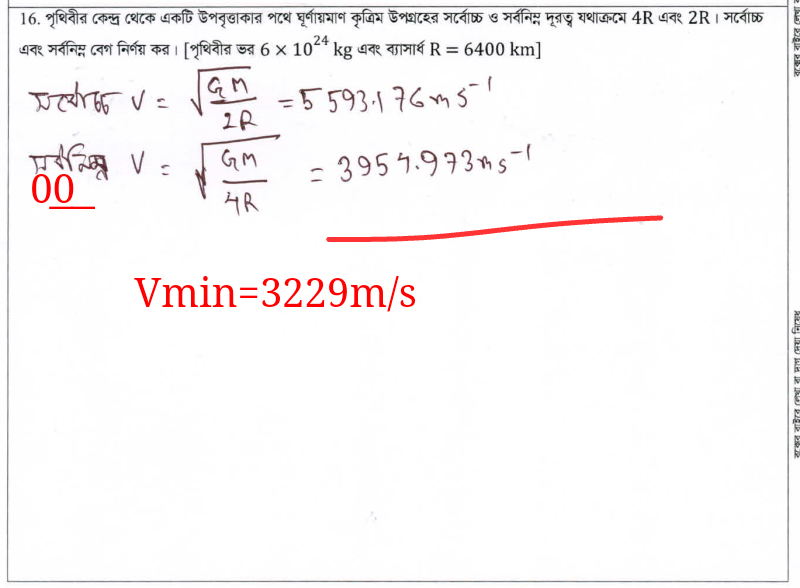 16. পৃথিবীর কেন্দ্র থেকে একটি উপবৃত্তাকার পথে ঘূর্ণায়মাণ কৃত্রিম উপগ্রহের সর্বোচ্চ ও সর্বনিম্ন দূরত্ব যথাক্রমে 4R এবং 2R। সর্বোচ্চ
এবং সর্বনিম্ন বেগ নির্ণয় কর। [পৃথিবীর ভর 6 × 10²⁴ kg এবং ব্যাসার্ধ R = 6400 km]
সর্বোচ্চ V = √(GM/2R) = 5593.176 ms⁻¹
সর্বনিম্ন V = √(GM/4R) = 3954.973 ms⁻¹
00
Vmin=3229m/s